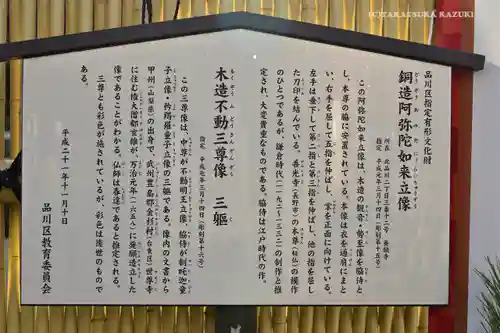 (C)TAKATSUKA KAZUKI
品川区指定有形文化財
銅造阿弥陀如来立像
所在 北品川二丁目三番十二号 養願寺
指定 平成元年三月十四日(彫刻第十五号)
この阿弥陀如来立像は、本造の観音・勢至像を脇侍と
し、本尊の脇に安置されている。本像は衣を通肩にまと
い、右手を屈して五指を伸ばし、掌を正面に向けている。
左手は垂下して第二指と第三指を伸ばし、他の指を屈し
た刀印を結んでいる。善光寺(長野市)の本尊(秘仏)の模作
のひとつであるが、鎌倉時代(一一九二~一三三三)の制作と推
定され、大変貴重なものである。脇侍は江戸時代の作。
木造不動三尊像 三軀
指定 平成七年三月十四日(彫刻第十六号)
この三尊像は、中尊が不動明王立像、脇侍が制吒迦童
子立像・矜羯羅童子立像の三軀である。像内の文書から
甲州(山梨県)の出身で、武州豊島郡金杉村(台東区)世尊寺
に住む権大僧都宥雄が、万治元年(一六五八)に発願造立した
像であることがわかる。仏師は春達であると推定される。
三尊とも彩色が施されているが、彩色は後世のもので
ある。
平成二十一年十一月十日
品川区教育委員会